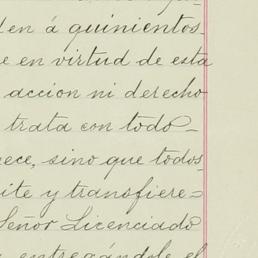 den á quinientos
e en virtud de esta
accion ni derecho
trata con todo-
ece, sino que todos
ite y transfiere=
Señor Licenciado
entregándole el